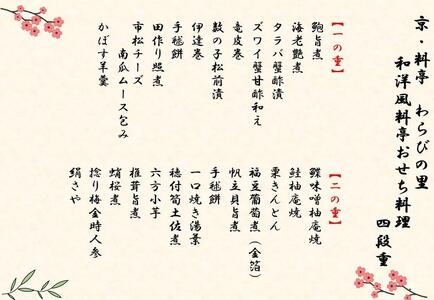 京・料亭 わらびの里
和洋風料亭おせち料理
四段重
【一の重】
鮑旨煮
海老艶煮
タラバ蟹甘酢漬
ズワイ蟹甘酢和え
竜皮巻
数の子松前漬
伊達巻
手毬餅
田作り照煮
市松チーズ
南瓜ムース包み
かぼす羊羹
【二の重】
鰈味噌柚庵焼
鮭柚庵焼
栗きんとん
福豆葡萄煮(金箔)
帆立貝旨煮
手毬餅
一口焼き湯葉
穂付筍土佐煮
六方小芋
椎茸旨煮
蛸桜煮
捻り梅金時人参
絹さや